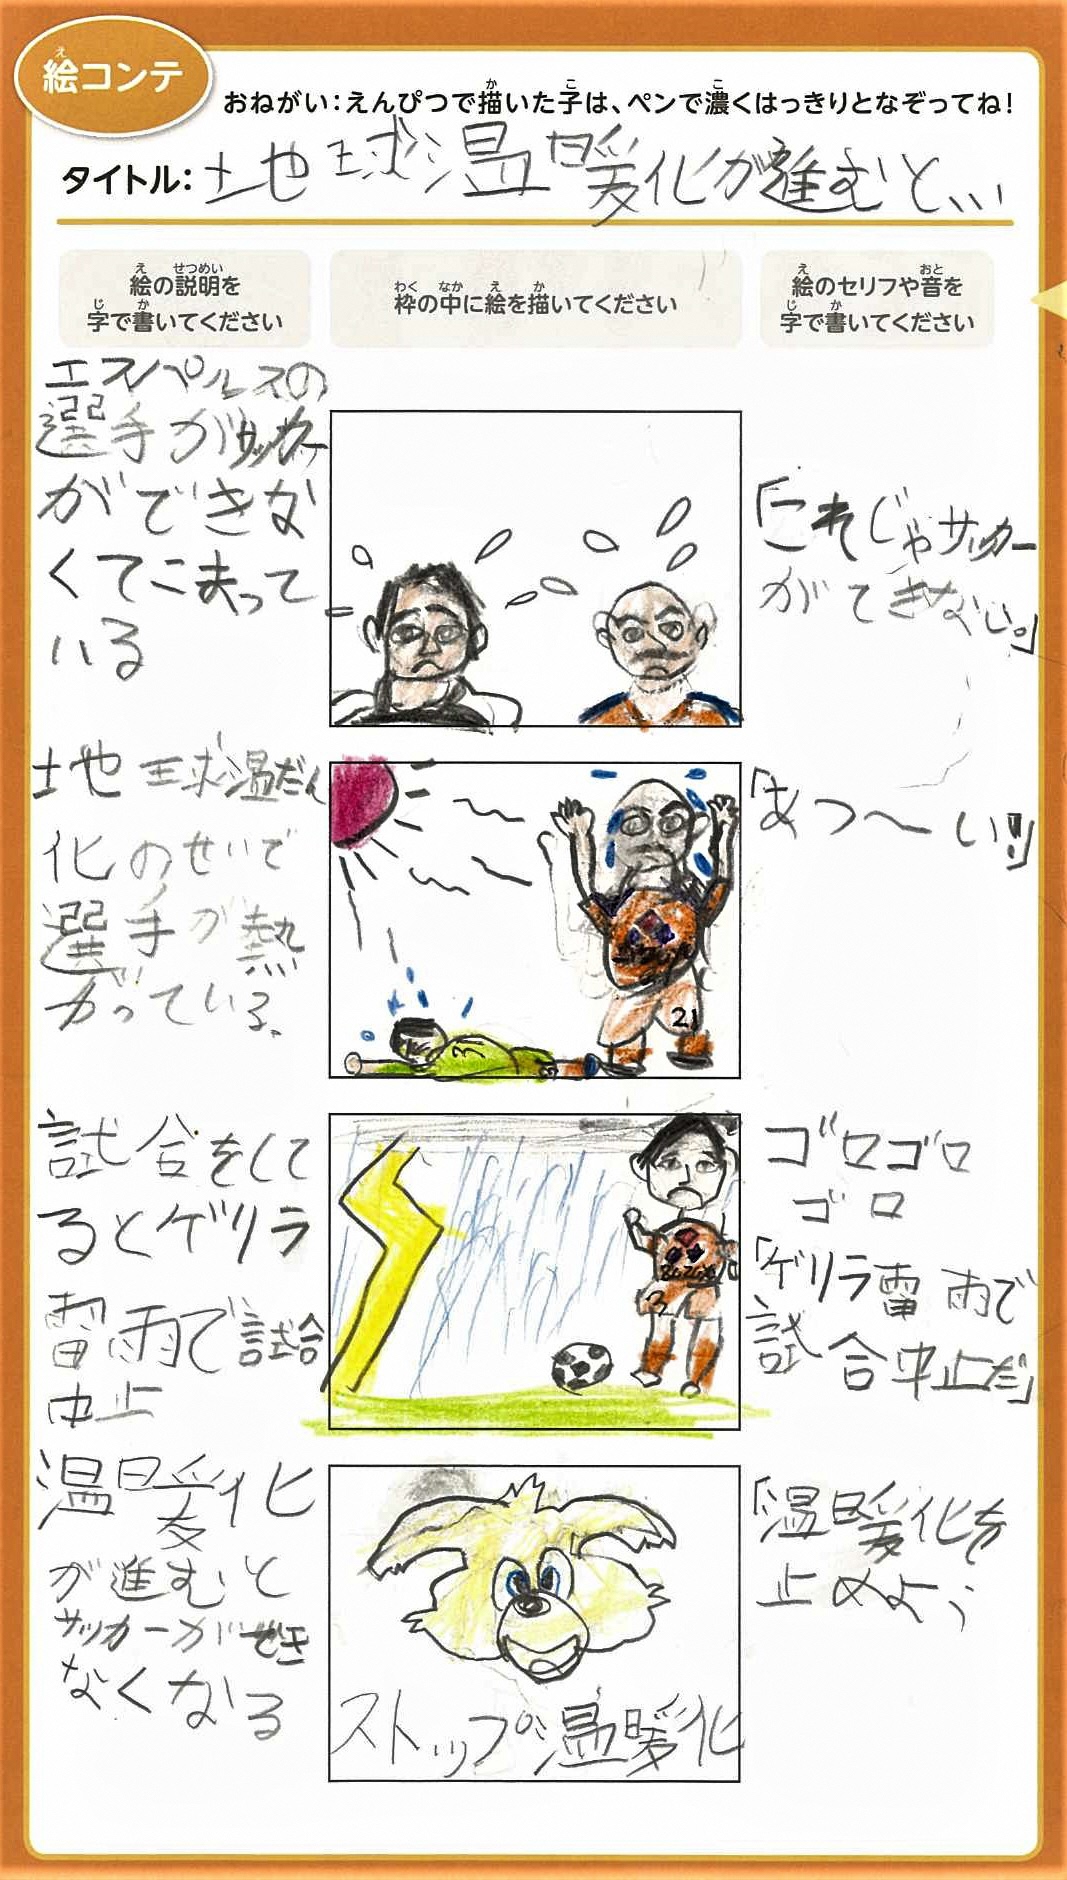 絵コンテ
おねがい：えんぴつで描いた子は、ペンで濃くはっきりとなぞってね！
タイトル：地球温暖化が進むと、、、
絵の説明を
字で書いてください
枠の中に絵を描いてください
絵のセリフや音を
字で書いてください
エスパルスの
選手がサッカー
ができな
くてこまって
いる
「これじゃサッカー
ができない。」
地球温だん
化のせいで
選手が熱
がっている。
「あつ〜い!!」
21
3
試合をして
るとゲリラ
雷雨で試合
中止
3
ゴロゴロ
ゴロ
「ゲリラ雷雨で
試合中止だ」
温暖化
が進むと
サッカーができ
なくなる
ストップ温暖化
「温暖化を
止めよう